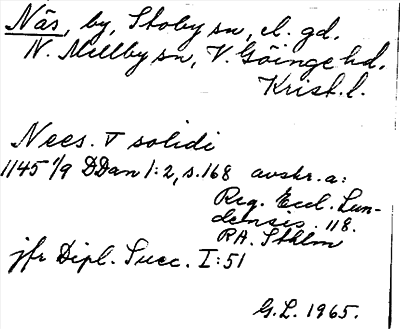 Näs, by, Stoby sn, el. gd.
N. Mellby sn, V. Göinge hd.
Krist. l.
Nees. V solidi
1145 1/9 DDan I:2, s.168 avskr. a:
Reg. Eccl. Lun-
densis. 118.
RA. Sthlm
jfr Dipl. Suec. I:51
G.L. 1965.